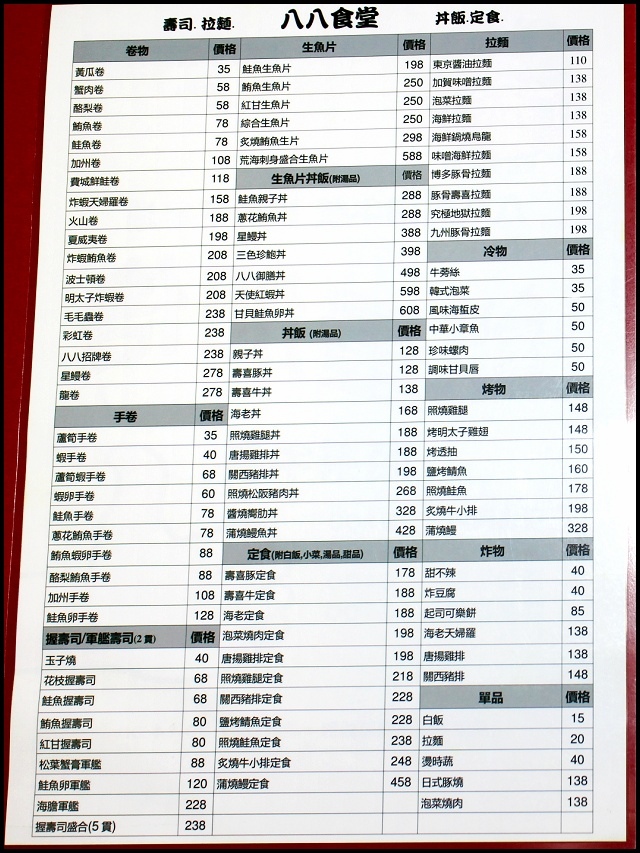 壽司.拉麵. 八八食堂 丼飯.定食.
卷物 價格
黃瓜卷 35
蟹肉卷 58
酪梨卷 58
鮪魚卷 78
鮭魚卷 78
加州卷 108
費城鮭鮭卷 118
炸蝦天婦羅卷 158
火山卷 188
夏威夷卷 198
炸蝦鮪魚卷 208
波士頓卷 208
明太子炸蝦卷 208
毛毛蟲卷 238
彩虹卷 238
八八招牌卷 238
星鰻卷 278
龍卷 278
手卷 價格
蘆筍手卷 35
蝦手卷 40
蘆筍蝦手卷 68
蝦卵手卷 60
鮭魚手卷 78
蔥花鮪魚手卷 78
鮪魚蝦卵手卷 88
酪梨鮪魚手卷 88
加州手卷 108
鮭魚卵手卷 128
握壽司/軍艦壽司(2貫) 價格
玉子燒 40
花枝握壽司 68
鮭魚握壽司 68
鮪魚握壽司 80
紅甘握壽司 80
松葉蟹膏軍艦 88
鮭魚卵軍艦 120
海膽軍艦 228
握壽司盛合(5貫) 238
生魚片 價格
鮭魚生魚片 198
鮪魚生魚片 250
紅甘生魚片 250
綜合生魚片 250
炙燒鮪魚生片 298
荒海刺身盛合生魚片 588
生魚片丼飯(附湯品) 價格
鮭魚親子丼 288
蔥花鮪魚丼 288
星鰻丼 388
三色珍鮑丼 398
八八御膳丼 498
天使紅蝦丼 598
甘貝鮭魚卵丼 608
丼飯 (附湯品) 價格
親子丼 128
壽喜豚丼 128
壽喜牛丼 138
海老丼 168
照燒雞腿丼 188
唐揚雞排丼 188
關西豬排丼 198
照燒松阪豬肉丼 268
醬燒嫩肋丼 328
蒲燒鰻魚丼 428
定食(附白飯,小菜,湯品,甜品) 價格
壽喜豚定食 178
壽喜牛定食 188
海老定食 188
泡菜燒肉定食 198
唐揚雞排定食 198
照燒雞腿定食 218
關西豬排定食 228
鹽烤鯖魚定食 228
照燒鮭魚定食 238
炙燒牛小排定食 248
蒲燒鰻定食 458
拉麵 價格
東京醬油拉麵 110
加賀味噌拉麵 138
泡菜拉麵 138
海鮮拉麵 138
海鮮鍋燒烏龍 158
味噌海鮮拉麵 158
博多豚骨拉麵 188
豚骨壽喜拉麵 188
究極地獄拉麵 198
九州豚骨拉麵 198
冷物 價格
牛蒡絲 35
韓式泡菜 35
風味海蜇皮 50
中華小章魚 50
珍味螺肉 50
調味甘貝唇 50
烤物 價格
照燒雞腿 148
烤明太子雞翅 148
烤透抽 150
鹽烤鯖魚 160
照燒鮭魚 178
炙燒牛小排 198
蒲燒鰻 328
炸物 價格
甜不辣 40
炸豆腐 40
起司可樂餅 85
海老天婦羅 138
唐揚雞排 138
關西豬排 148
單品 價格
白飯 15
拉麵 20
燙時蔬 40
日式豚燒 138
泡菜燒肉 138